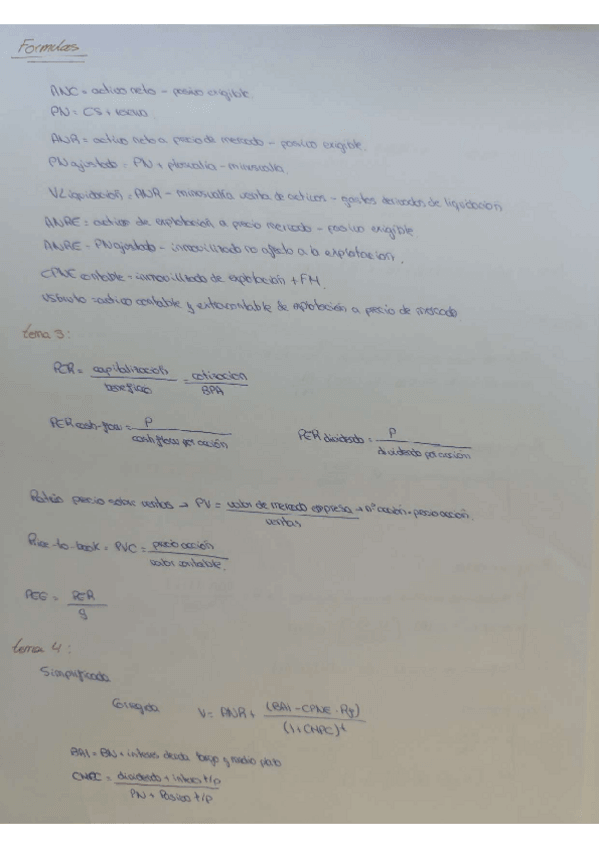 Formulas
ANC = activo neto - pasivo exigible.
PN = CS +
ANR = activo neto a precio de mercado - pasivo exigible.
PN ajustado = PN + plusvalía - minusvalía.
V Liquidación = ANR - minusvalía venta de activos - gastos derivados de liquidación
ANRE = activo de explotación a precio mercado - pasivo exigible.
ANRE = PN ajustado - inmovilizado no afecto a la explotación.
CPNE contable = inmovilizado de explotación + FM.
VS bruto = activo contable y extracontable de explotación a precio de mercado
tema 3:
PER = capitalización / beneficio = cotización / BPA
PER cash-flow = P / cash flow por acción
PER dividendo = P / dividendo por acción
Ratio precio sobre ventas → PV = valor de mercado empresa → nº acción · precio acción. / ventas
Price-to-book = PVC = precio acción / valor contable.
PEG = PER / g
tema 4:
Simplificada
Corregida V = ANR + (BAI - CPNE · Rf) / (1 + CMPC)^t
BAI = BN + interes deuda largo y medio plazo
CMPC = dividendo + interes t/p / PN + Pasivo t/p